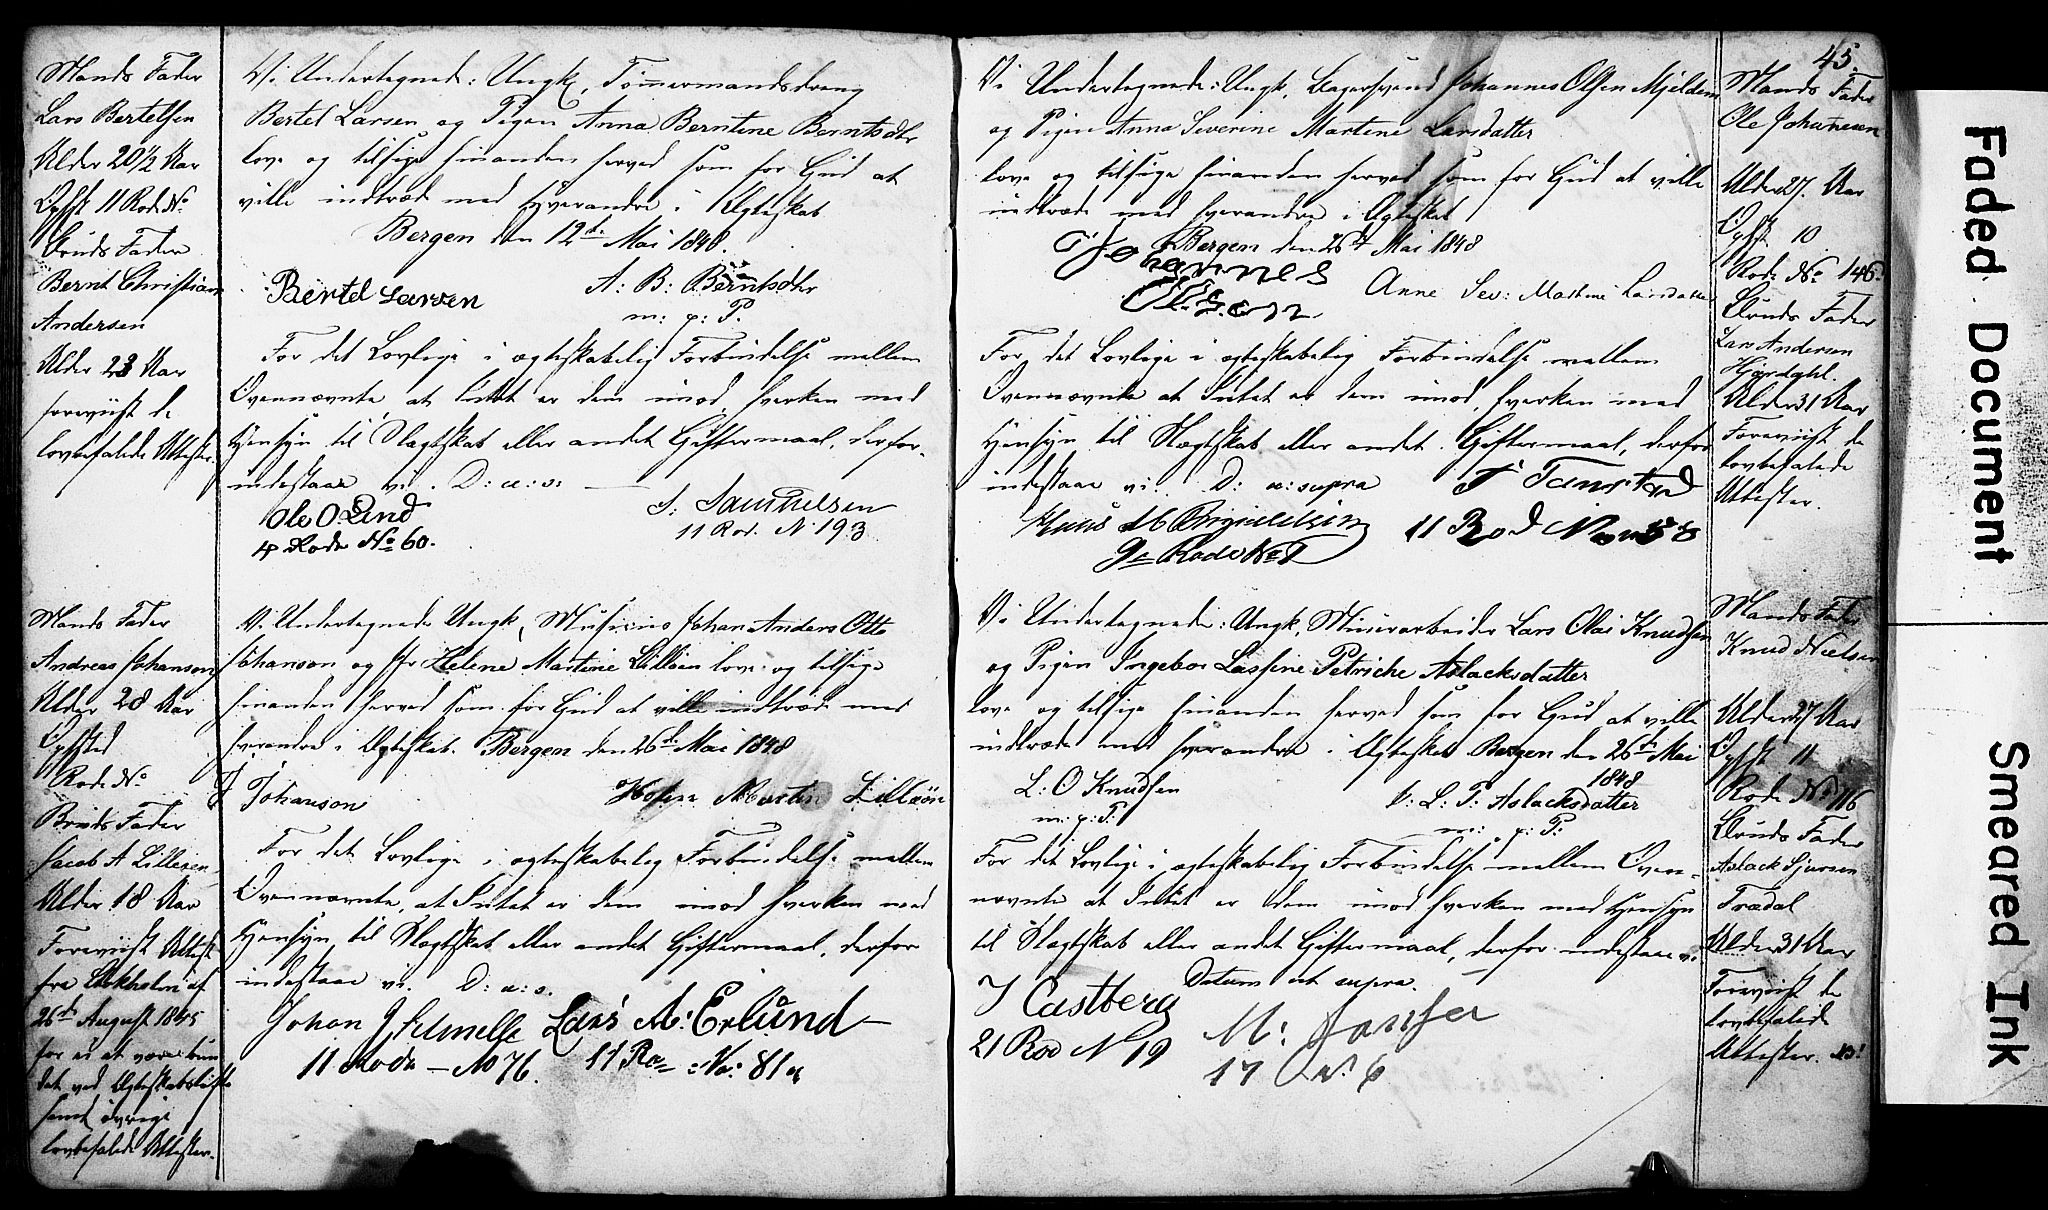 Mands Fader
Lars Bertelsen
Alder 20 1/2 Aar
Opfst 11 Rode No
Bruds Fader
Bernt Christian
Andersen
Alder 23 Aar
foreviist de
lovbefalede Attester.
Vi Undertegnede: Ungk, Tømermandsdreng
Bertel Larsen og Pigen Anna Berntine Berntsdtr
love og tilsige hinanden herved som for Gud at
ville indtræde med hverandre i Ægteskab
Bergen den 12te Mai 1848.
Bertel Larsen
A: B: Berntsdtr
m: p: P.
For det Lovlige i ægteskabelig Forbindelse mellem
Ovennævnte at Intet er dem imod, hverken med
Hensyn til Slægtskab eller andet Giftermaal, derfor
indestaae vi. D: u: s:
Ole O Lind
4 Rode No 60.
S. Samuelsen
11 Rod. N 193
Mands Fader
Andreas Johanson
Alder 28 Aar
Opfsted
Rode No
Bruds Fader
Jacob A Lillesøn
Alder 18 Aar
Foreviist Attest
fra Stokholm af
26de August 1845
for ei at være bun
det ved Ægteskabsløfte
samt øvrige
lovbefalede Attester.
Vi Undertegnede Ungk, Musicus Johan Anders Otto
Johanson og Jfr Helene Martine Lillesøn love og tilsige
hinanden herved som for Gud at ville indtræde med
hverandre i Ægteskab. Bergen den 26de Mai 1848
Johanson
Helene Martin Lillesøn
For det Lovlige i ægteskabelig Forbindelse mellem
Ovennævnte, at Intet er dem imod hverken med
Hensyn til Slægtskab eller andet Giftermaal, derfor
indestaae vi. D: u: s.
Johan J Schnelle
11 Rode - No 76.
Lars A: Erlund
11 Ro No: 81a
45.
Vi Undertegnede: Ungk, Bagersvend Johannes Olsen Mjeldem
og Pigen Anna Severine Martine Larsdatter
love og tilsige hinanden herved som for Gud at ville
indtræde med hverandre i Ægteskab
Bergen den 26de Mai 1848
Johannes
Olsen
Anne Sev: Martine Larsdatter
For det Lovlige i ægteskabelig Forbindelse mellem
Ovennævnte at Intet er dem imod, hverken med
Hensyn til Slægtskab eller andet Giftermaal, derfor
indestaae vi. D: u: supra
11 Rod
Mands Fader
Ole Johannesen
Alder 27. Aar
Opfst 10
Rode No 146.
Bruds Fader
Lars Andersen
Hjordahl.
Alder 31 Aar
Foreviist de
lovbefalede
Attester.
Vi Undertegnede: Ungk, Minerarbeider Lars Olai Knudsen
og Pigen Ingebor Lassine Petriche Aslacksdatter
love og tilsige hinanden herved som for Gud at ville
indtræde med hverandre i Ægteskab Bergen den 26de Mai
1848
L: O Knudsen
m: p: P.
I: L: P: Aslacksdatter
m: p: P:
For det Lovlige i ægteskabelig Forbindelse mellem Oven-
nævnte at Intet er dem imod hverken med Hensyn
til Slægtskab eller andet Giftermaal, derfor indestaae vi
Datum ut supra.
J Castberg
21 Rod N 19
M: Jansen
17 N. 6
Mands Fader
Knud Nielsen
Alder 27 Aar
Opfst 11
Rode No 116
Bruds Fader
Aslack Sjursen
Trædal
Alder 31 Aar
Foreviist de
lovbefalede
Attester.
Faded Document
Smeared Ink